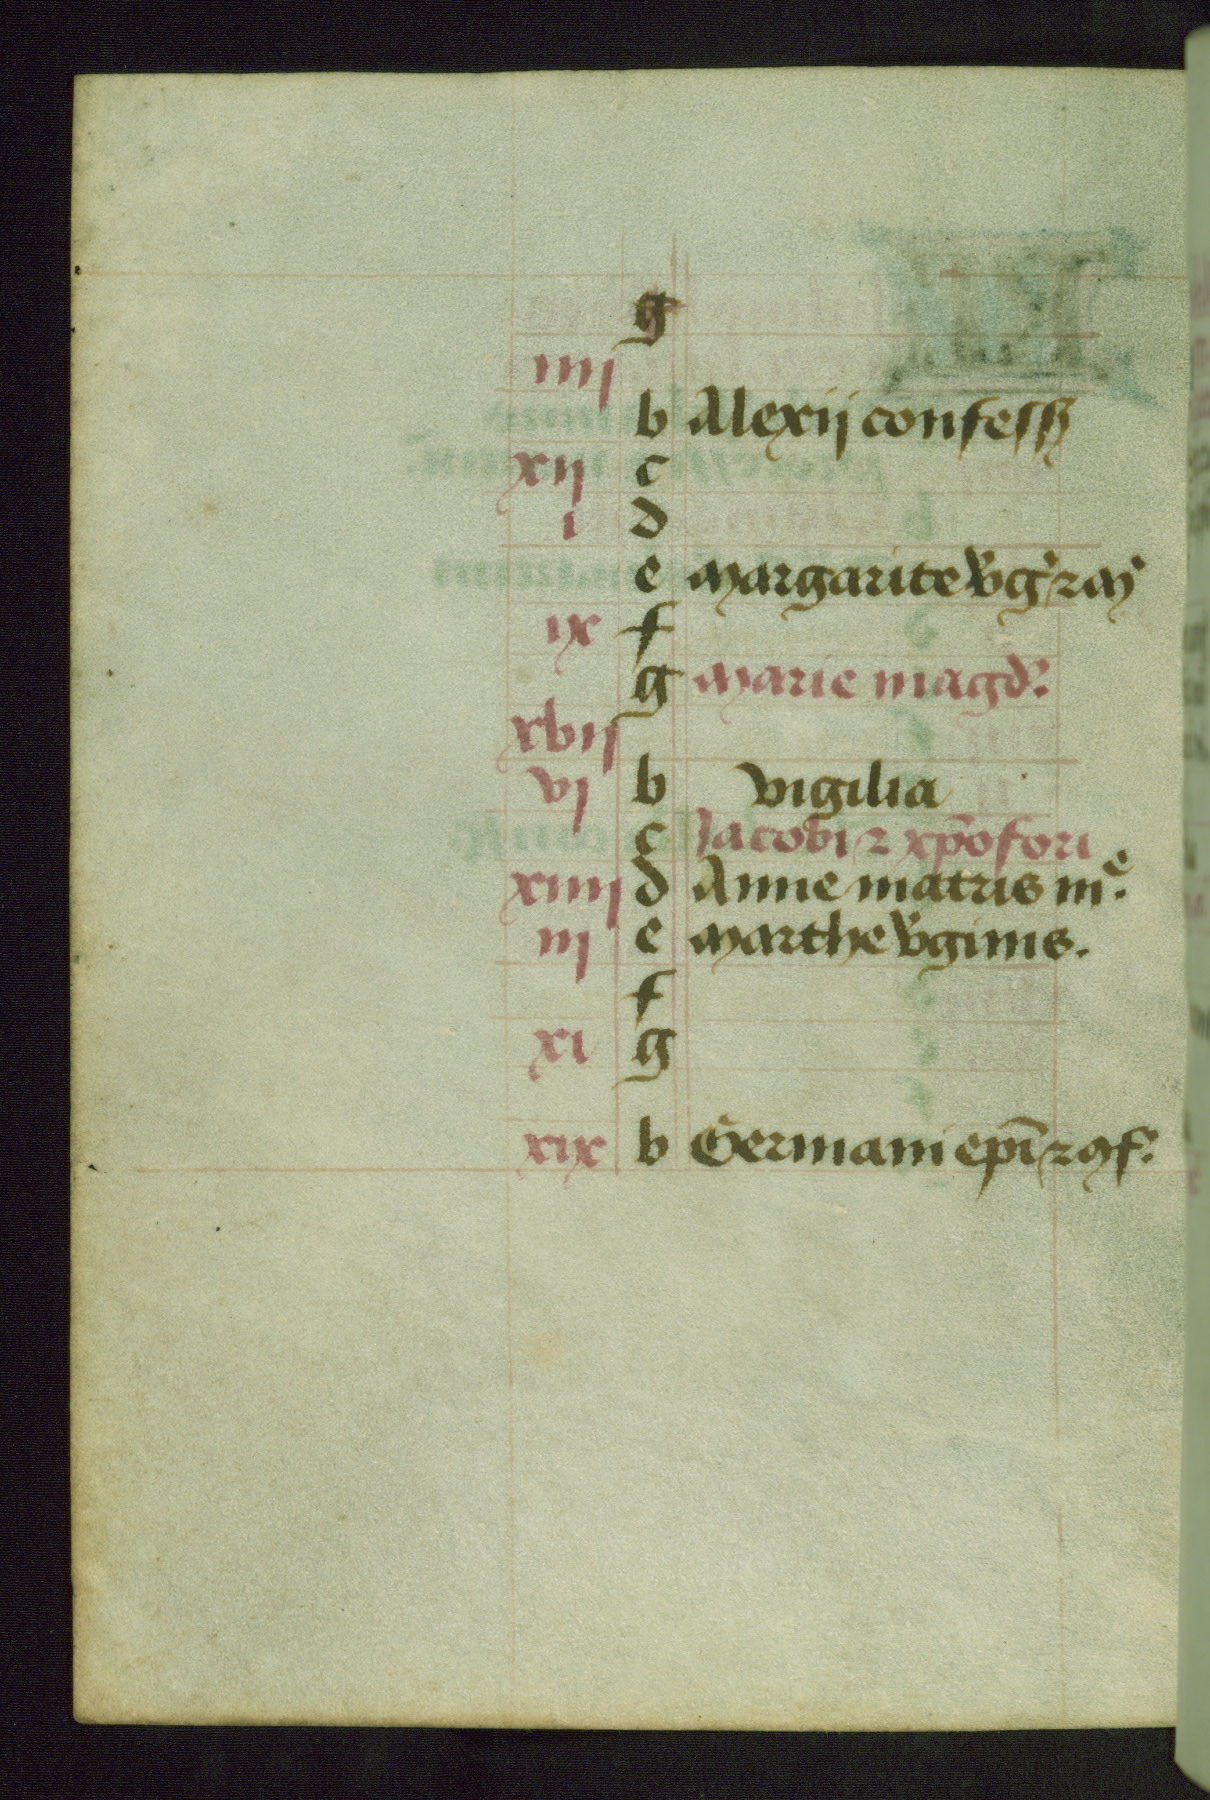 g
iiij
b Alexij confess
xij c
i d
e Margarite v'g' 2 m
ix f
g Marie magd'.
xvij
vj b vigilia
c Jacobi 2 xp̄ofori
xiiij d Anne matris m.e
iij e Marthe v'ginis.
f
xi g
xix b Germani ep̄i 2 9f.